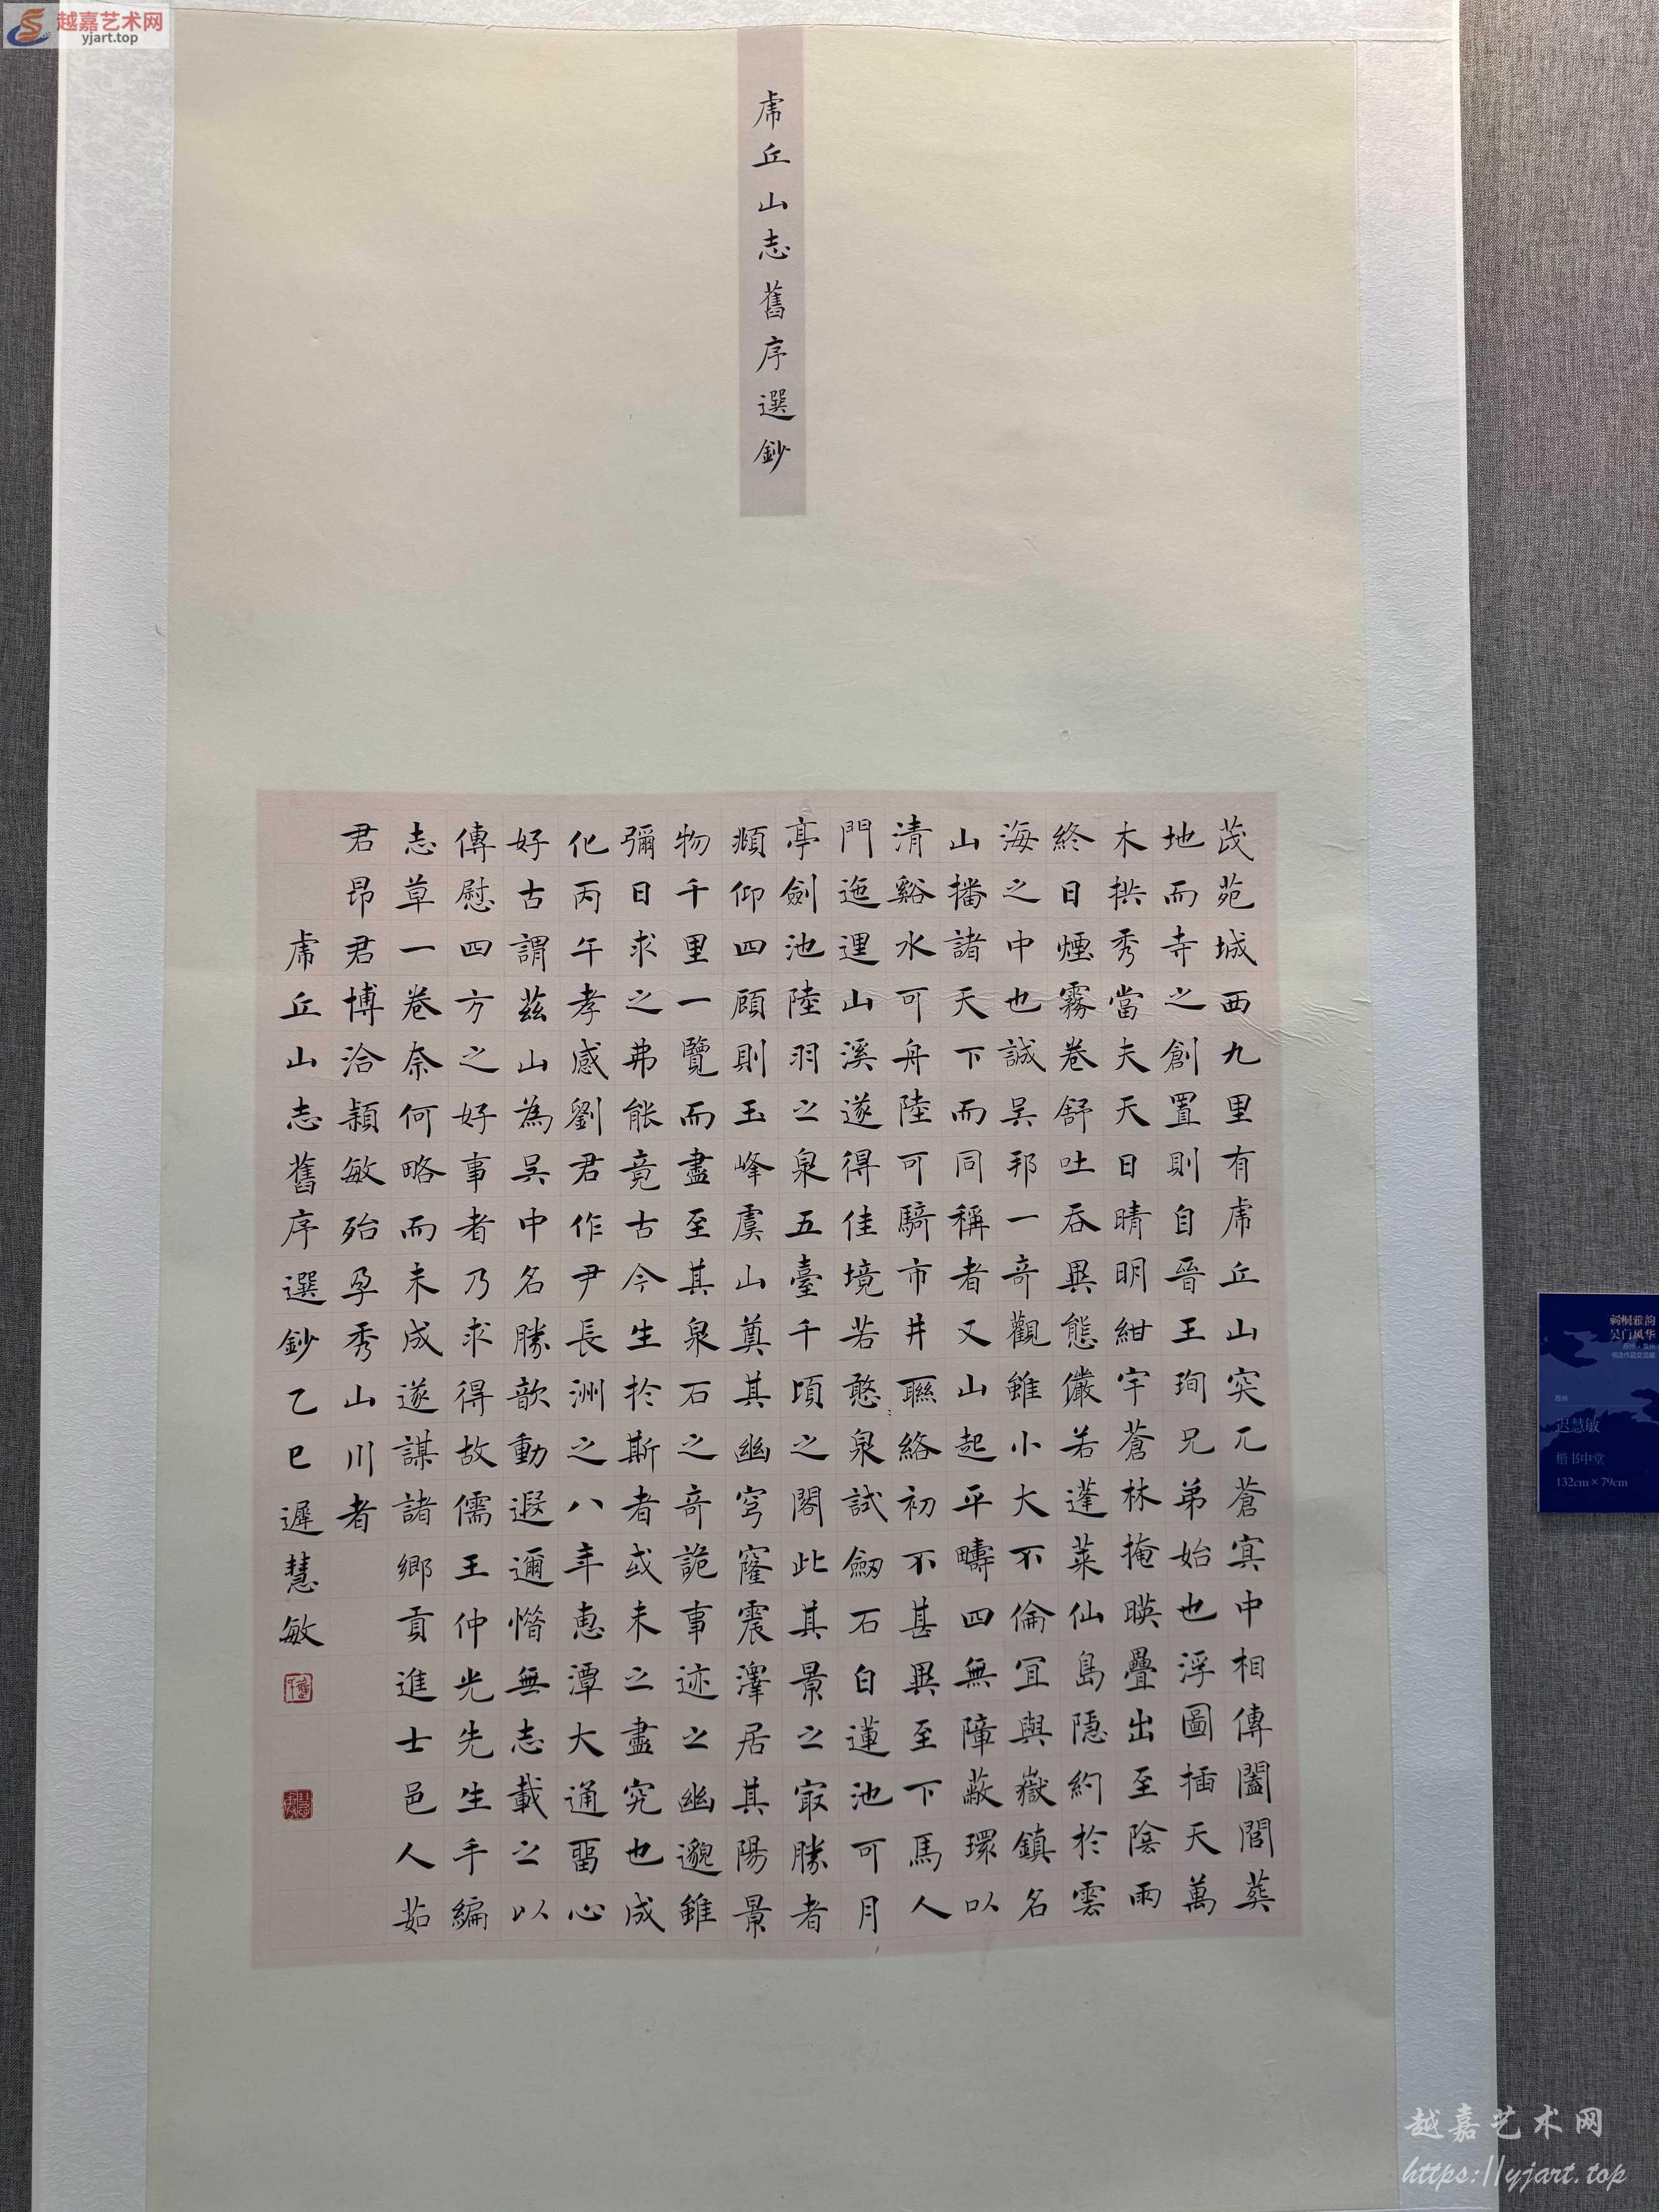 越嘉艺术网
yjart.top
虎丘山志舊序選鈔
茂苑城西九里有虎丘山突兀蒼寞中相傳闔閭葬
地而寺之創置則自晉王珣兄弟始也浮圖插天萬
木拱秀當夫天日晴明紺宇蒼林掩暎疊出至陰雨
終日煙霧卷舒吐吞異態儼若蓬萊仙島隱約於雲
海之中也誠吳邦一奇觀雖小大不倫宜與嶽鎮名
山播諸天下而同稱者又山起平疇四無障蔽環以
清谿水可舟陸可騎市井聯絡初不甚異至下馬人
門迤邐山溪遂得佳境若憨泉試劒石白蓮池可月
亭劍池陸羽之泉五臺千頃之閣此其景之寂勝者
頫仰四顧則玉峰虞山奠其幽穹窿震澤居其陽景
物千里一覽而盡至其泉石之奇詭事迹之幽邈雖
彌日求之弗能竟古今生於斯者或未之盡究也成
化丙午孝感劉君作尹長洲之八年惠潭大通畱心
好古謂茲山為吳中名勝歆動遐邇愲無志載之以
傳慰四方之好事者乃求得故儒王仲光先生手編
志草一卷奈何略而未成遂謀諸鄉貢進士邑人茹
君昂君博洽穎敏殆孕秀山川者
虎丘山志舊序選鈔乙巳遲慧敏
吴门风华
迟慧敏
楷书中堂
132cm×79cm
越嘉艺术网
https://yjart.top